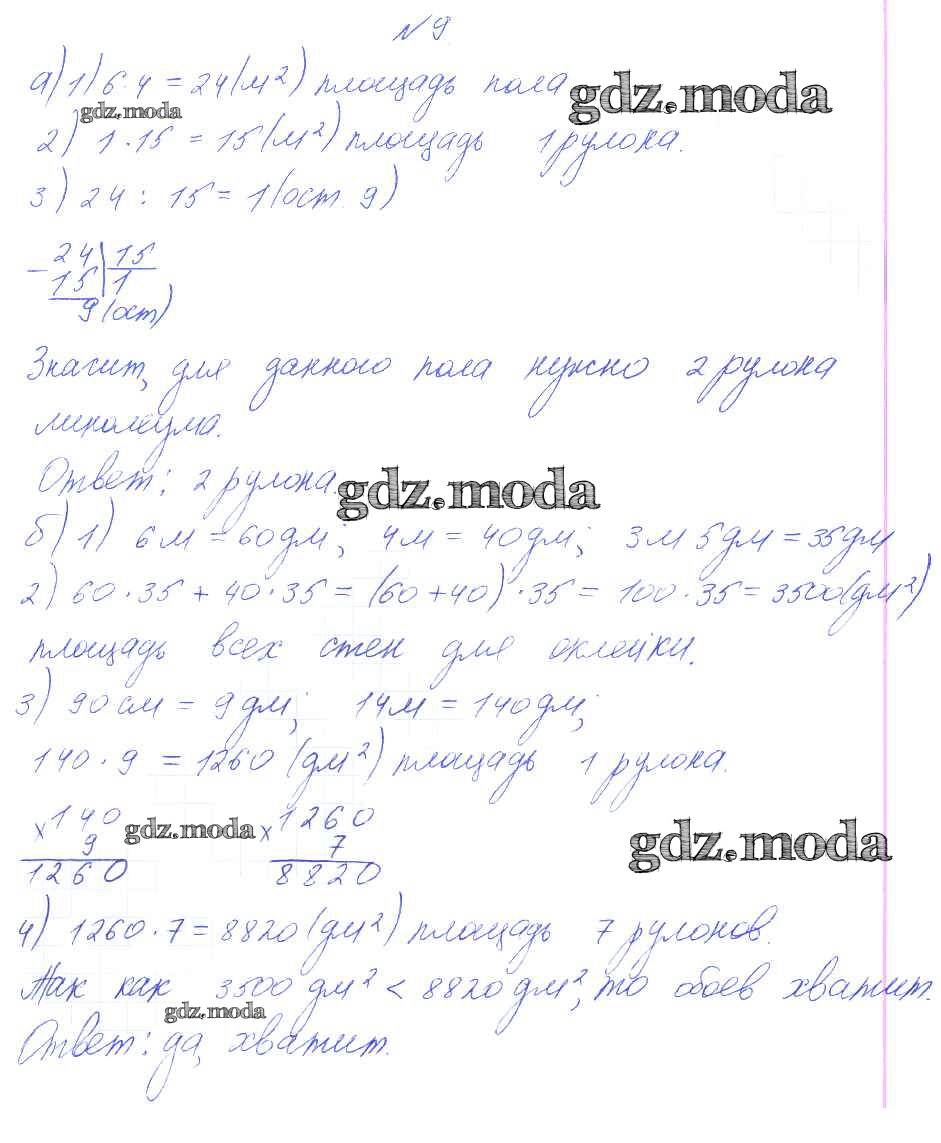 №9.
а) 1) 6·4 = 24 (м²) площадь пола
gdz.moda
gdz.moda
2) 1·15 = 15 (м²) площадь 1 рулона.
3) 24 : 15 = 1 (ост. 9)
- 24 | 15
15 | 1
9 (ост)
Значит, для данного пола нужно 2 рулона
линолеума.
Ответ: 2 рулона.
gdz.moda
б) 1) 6 м = 60 дм; 4 м = 40 дм; 3 м 5 дм = 35 дм
2) 60·35 + 40·35 = (60+40)·35 = 100·35 = 3500 (дм²)
площадь всех стен для оклейки.
3) 90 см = 9 дм; 14 м = 140 дм;
140·9 = 1260 (дм²) площадь 1 рулона.
х 140 gdz.moda х 1260 gdz.moda
9 7
1260 8820
4) 1260·7 = 8820 (дм²) площадь 7 рулонов.
Так как 3500 дм² < 8820 дм², то обоев хватит.
gdz.moda
Ответ: да, хватит.